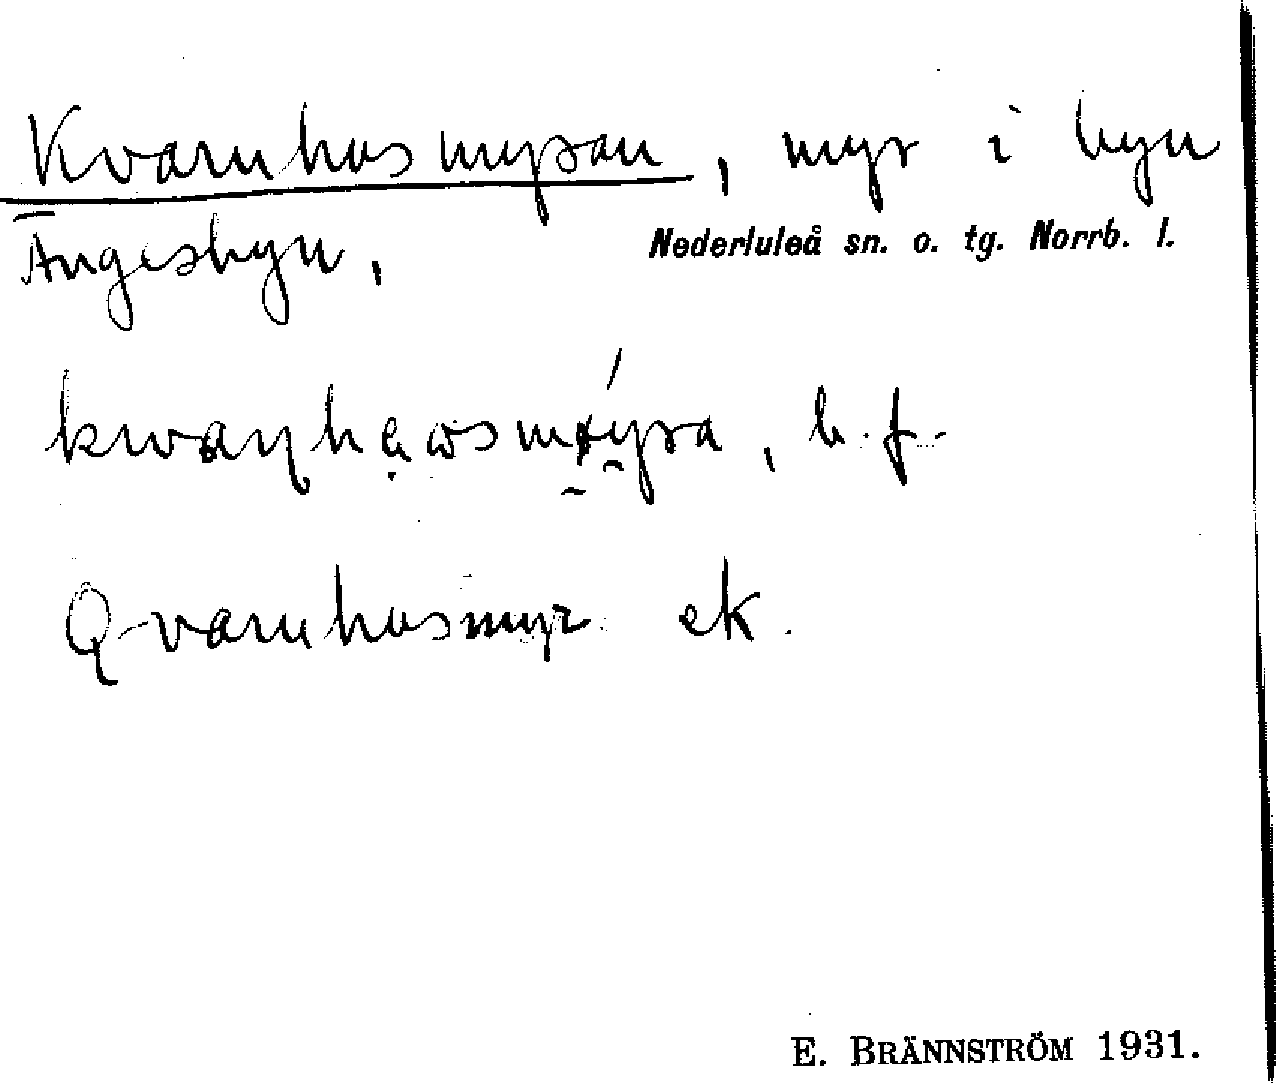 Kvarnhusmyran, myr i byn
Ängesbyn,
Nederluleå sn. o. tg. Norrb. l.
b. f.
Qvarnhusmyr ek.
E. BRÄNNSTRÖM 1931.